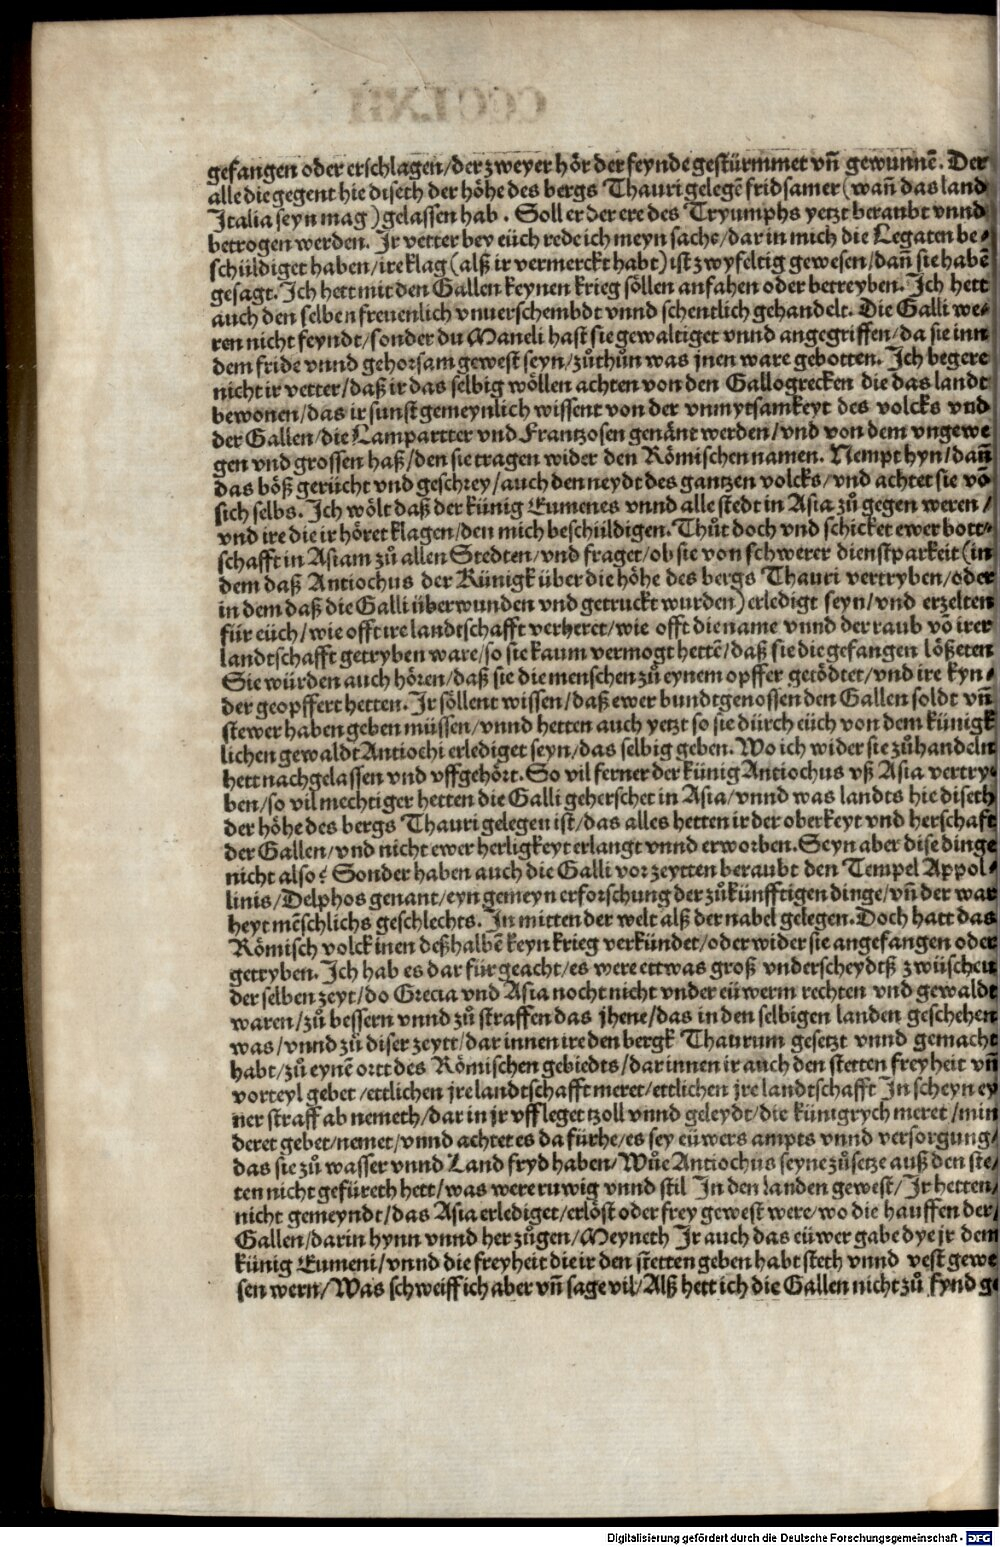 gefangen oder erschlagen/der zweyer hör der feynde gestürmmet vñ gewunnē. Der
alle die gegent hie diseth der höhe des bergs Thauri gelegē fridsamer (wañ das land
Italia seyn mag) gelassen hab. Soll er der ere des Tryumphs yetzt beraubt vnnd
betrogen werden. Ir vetter bey eüch rede ich meyn sache/dar in mich die Legaten be⸗
schüldiget haben/ire klag (alß ir vermerckt habt) ist zwyfeltig gewesen/dañ sie habē
gesagt. Ich hett mit den Gallen keynen krieg söllen anfahen oder betreyben. Ich hett
auch den selben freuenlich vnuerschembdt vnnd schentlich gehandelt. Die Galli we⸗
ren nicht feyndt/sonder du Maneli hast sie gewaltiget vnnd angegriffen/da sie inn
dem fride vnnd gehorsam gewest seyn/zůthůn was jnen ware gebotten. Ich begere
nicht ir vetter/daß ir das selbig wöllen achten von den Gallogrecken die das landt
bewonen/das ir sunst gemeynlich wissent von der vnmytsamkeyt des volcks vnd
der Gallen/die Lampartter vnd Frantzosen genänt werden/vnd von dem vngewe
gen vnd grossen haß/den sie tragen wider den Römischen namen. Nempt hyn/dañ
das böß gerücht vnd geschrey/auch den neydt des gantzen volcks/vnd achtet sie võ
sich selbs. Ich wölt daß der künig Eumenes vnnd alle stedt in Asia zů gegen weren/
vnd ire die ir höret klagen/den mich beschüldigen. Thůt doch vnd schicket ewer bott⸗
schafft in Asiam zů allen Stedten/vnd fraget/ob sie von schwerer dienstparkeit (in
dem daß Antiochus der Künigk über die höhe des bergs Thauri vertryben/oder
in dem daß die Galli überwunden vnd getruckt wurden) erledigt seyn/vnd erzelten
für eüch/wie offt ire landtschafft verheret/wie offt die name vnnd der raub võ irer
landtschafft getryben ware/so sie kaum vermogt hettē/daß sie die gefangen lößeten
Sie würden auch hören/daß sie die menschen zů eynem opffer getödtet/vnd ire kyn⸗
der geopffert hetten. Ir söllent wissen/daß ewer bundtgenossen den Gallen soldt vñ
stewer haben geben müssen/vnnd hetten auch yetzt so sie dürch eüch von dem künigk
lichen gewaldt Antiochi erlediget seyn/das selbig geben. Wo ich wider sie zůhandeln
hett nachgelassen vnd vffgehört. So vil ferner der künig Antiochus vß Asia vertry⸗
ben/so vil mechtiger hetten die Galli geherschet in Asia/vnnd was landts hie diseth
der höhe des bergs Thauri gelegen ist/das alles hetten ir der oberkeyt vnd herschaft
der Gallen/vnd nicht ewer herligkeyt erlangt vnnd erworben. Seyn aber dise dinge
nicht also? Sonder haben auch die Galli vor zeytten beraubt den Tempel Appol⸗
linis/Delphos genant/eyn gemeyn erforschung der zůkünfftigen dinge/vñ der war
heyt mēschlichs geschlechts. In mitten der welt alß der nabel gelegen. Doch hatt das
Römisch volck inen deßhalbē keyn krieg verkündet/oder wider sie angefangen oder
getryben. Ich hab es dar für geacht/es were ettwas groß vnderscheydtß zwüschen
der selben zeyt/do Grecia vnd Asia nocht nicht vnder eüwerm rechten vnd gewaldt
waren/zů bessern vnnd zů straffen das jhene/das in den selbigen landen geschehen
was/vnnd zů diser zeytt/dar innen ire den bergk Thaurum gesetzt vnnd gemacht
habt/zů eynē ortt des Römischen gebiedts/dar innen ir auch den stetten freyheit vñ
vorteyl gebet/ettlichen jre landtschafft meret/ettlichen jre landtschafft In scheyn ey
ner straff ab nemeth/dar in jr vff leget tzoll vnnd geleydt/die künigrych meret/min
deret gebet/nemet/vnnd achtet es da fürhe/es sey eüwers ampts vnnd versorgung/
das sie zů wasser vnnd Land fryd haben/Wůe Antiochus seyne zůsetze auß den ste/
ten nicht gefüreth hett/was were ruwig vnnd stil In den Landen gewest/Ir hetten/
nicht gemeyndt/das Asia erlediget/erlöst oder frey gewest were/wo die hauffen der/
Gallen/darin hynn vnnd her zůgen/Meyneth Ir auch das eüwer gabe dye jr dem
künig Eumeni/vnnd die freyheit die ir den stetten geben habt steth vnnd vest gewe
sen wern/Was schweiff ich aber vñ sage vil/Alß hett ich die Gallen nicht zů fynd ge
Digitalisierung gefördert durch die Deutsche Forschungsgemeinschaft - DFG